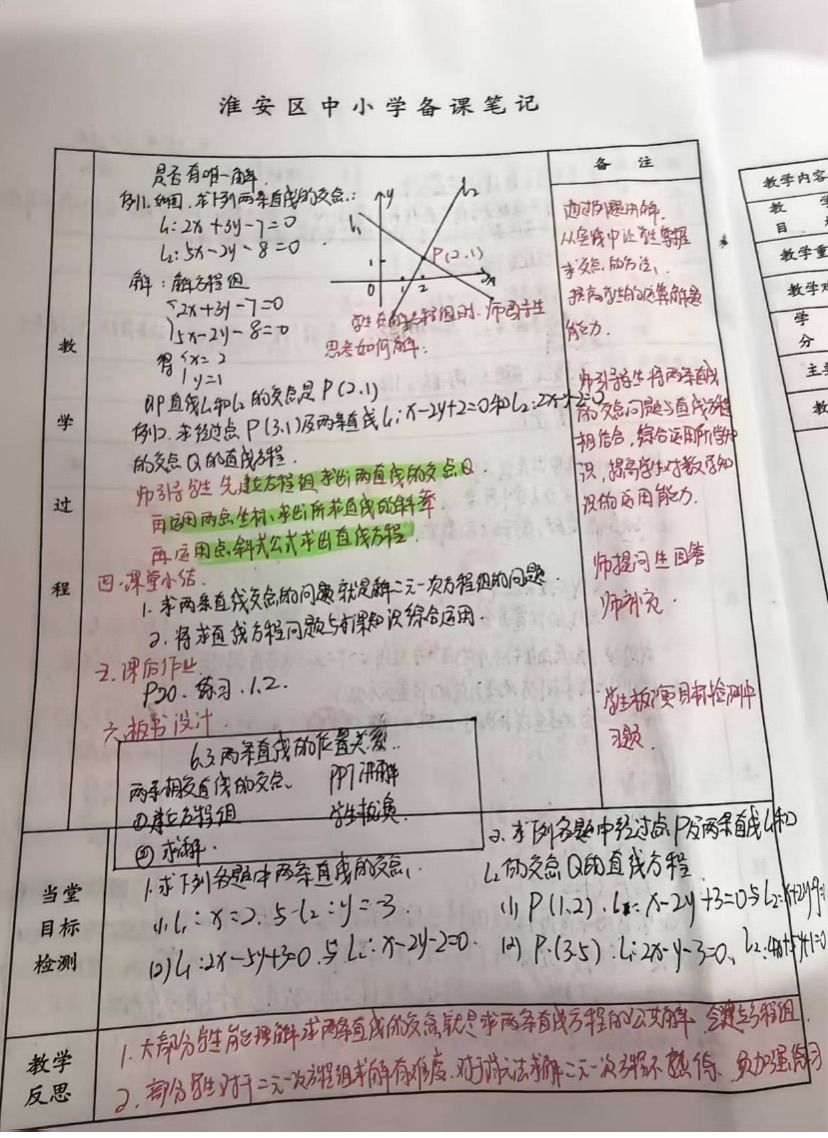 淮安区中小学备课笔记
备注
教学过程
是否有唯一解.
例1.如图.求下列两条直线的交点:
l₁: 2x+3y-7=0
l₂: 5x-2y-8=0
解:解方程组
2x+3y-7=0
5x-2y-8=0
得 x=2
y=1
y
l₁
l₂
P(2.1)
1
0
1
2
x
学生在解方程组时.师留学生
思考如何解.
即直线l₁和l₂的交点是P(2.1)
例2.求经过点P(3.1)及两条直线l₁:x-2y+2=0和l₂:2x-y-2=0
的交点Q的直线方程.
师引导学生先建立方程组求出两直线的交点Q.
再运用两点坐标,求出所求直线的斜率
再运用点斜式公式求出直线方程.
四.课堂小结.
1.求两条直线交点的问题就是解二元一次方程组的问题.
2.将求直线方程问题与所学知识综合运用.
五.课后作业
P30.练习.1.2.
六.板书设计.
6.3两条直线的位置关系.
两条相交直线的交点. PPT讲解
①建立方程组 学生板演.
②求解.
通过例题讲解.
从实践中让学生掌握
求交点的方法,
提高学生的运算解题
能力.
师引导学生将两条直线
的交点问题与直线方程
相结合,综合运用所学知
识,提高学生对数学知
识的运用能力.
师提问生回答
师补充.
学生板演目标检测中
习题.
当堂
目标
检测
1.求下列各题中两条直线的交点.
(1) l₁:x=2.与l₂:y=-3.
(2) l₁:2x-5y+3=0.与l₂:x-2y-2=0.
2.求下列各题中经过点P及两条直线l₁和
l₂的交点Q的直线方程.
(1) P(1.2).l₁:x-2y+3=0与l₂:x+2y-9=
(2) P.(3.5).l₁:2x-y-3=0、l₂:4x+5y+1=0
教学
反思
1.大部分学生能理解求两条直线的交点就是求两条直线方程的公共解,会建立方程组.
2.部分学生对于二元一次方程组求解有难度.对于消元法求解二元一次方程不熟练、须加强练习
教学内容
教 学
目
教学重
教学难
学
分
主
教